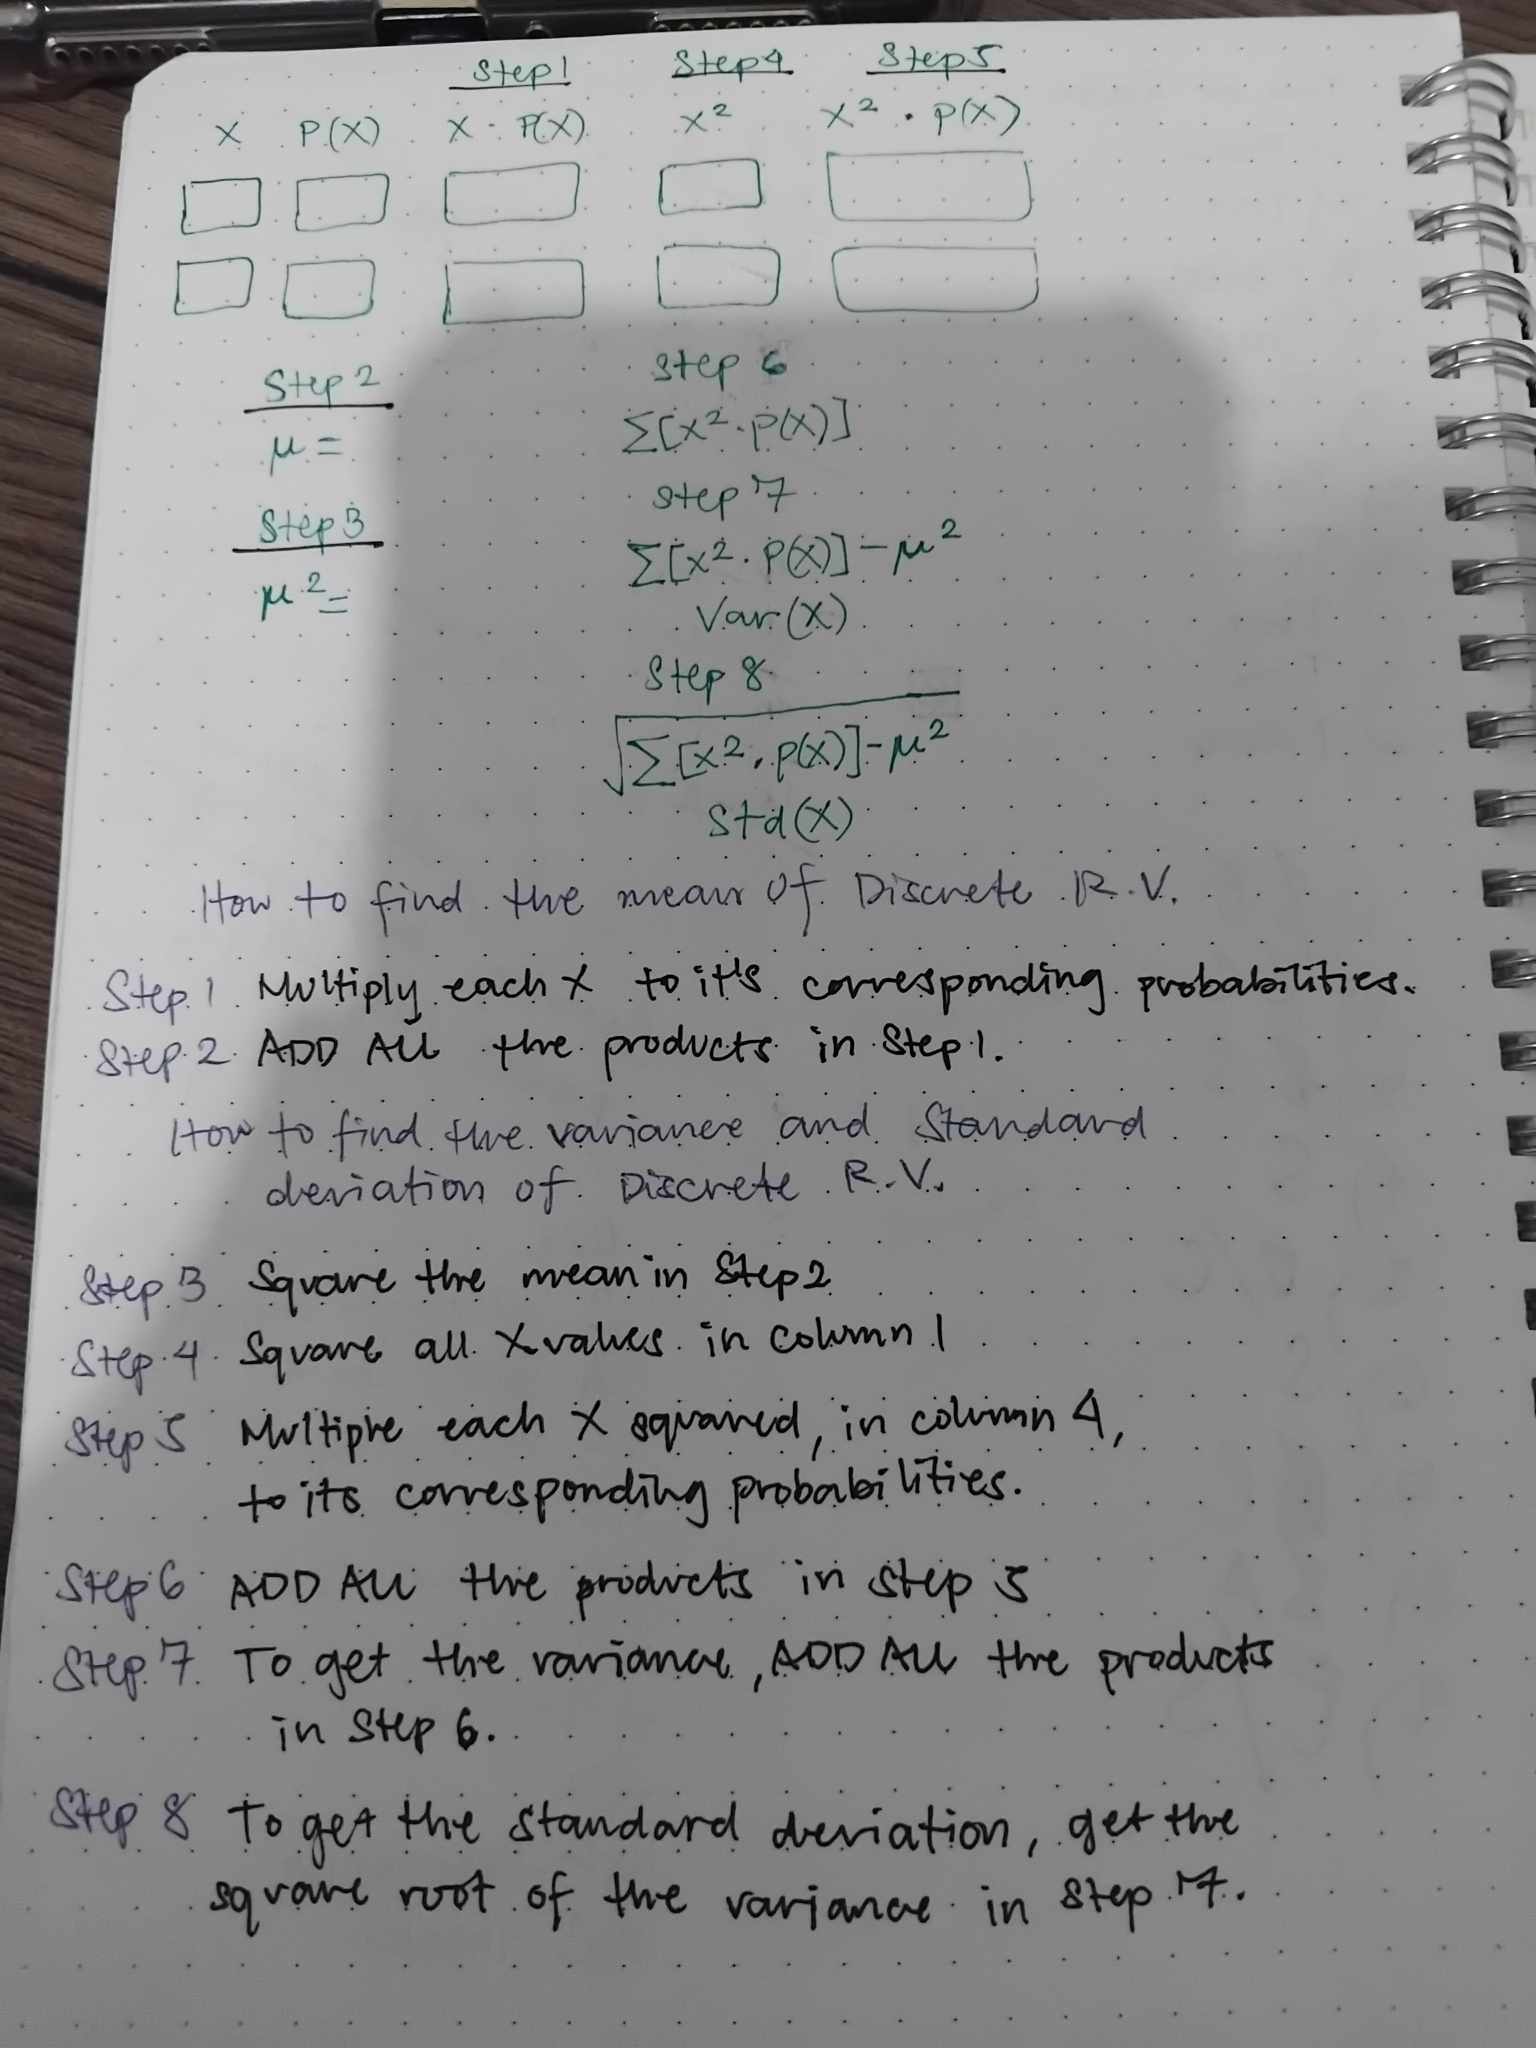 Step 1 Step 4 Step 5
X P(X) X · P(X) X² X² · P(X)
Step 2
μ =
Step 3
μ² =
Step 6
Σ[X² · P(X)]
Step 7
Σ[X² · P(X)] - μ²
Var(X)
Step 8
√Σ[X² · P(X)] - μ²
Std(X)
How to find the mean of Discrete R.V.
Step 1 Multiply each X to it's corresponding probabilities.
Step 2 ADD All the products in Step 1.
How to find the variance and Standard
deviation of Discrete R.V.
Step 3 Square the mean in Step 2
Step 4 Square all X values in column 1
Step 5 Multiple each X squared, in column 4,
to its corresponding probabilities.
Step 6 ADD All the products in Step 5
Step 7 To get the variance, ADD All the products
in Step 6.
Step 8 To get the standard deviation, get the
square root of the variance in Step 7.